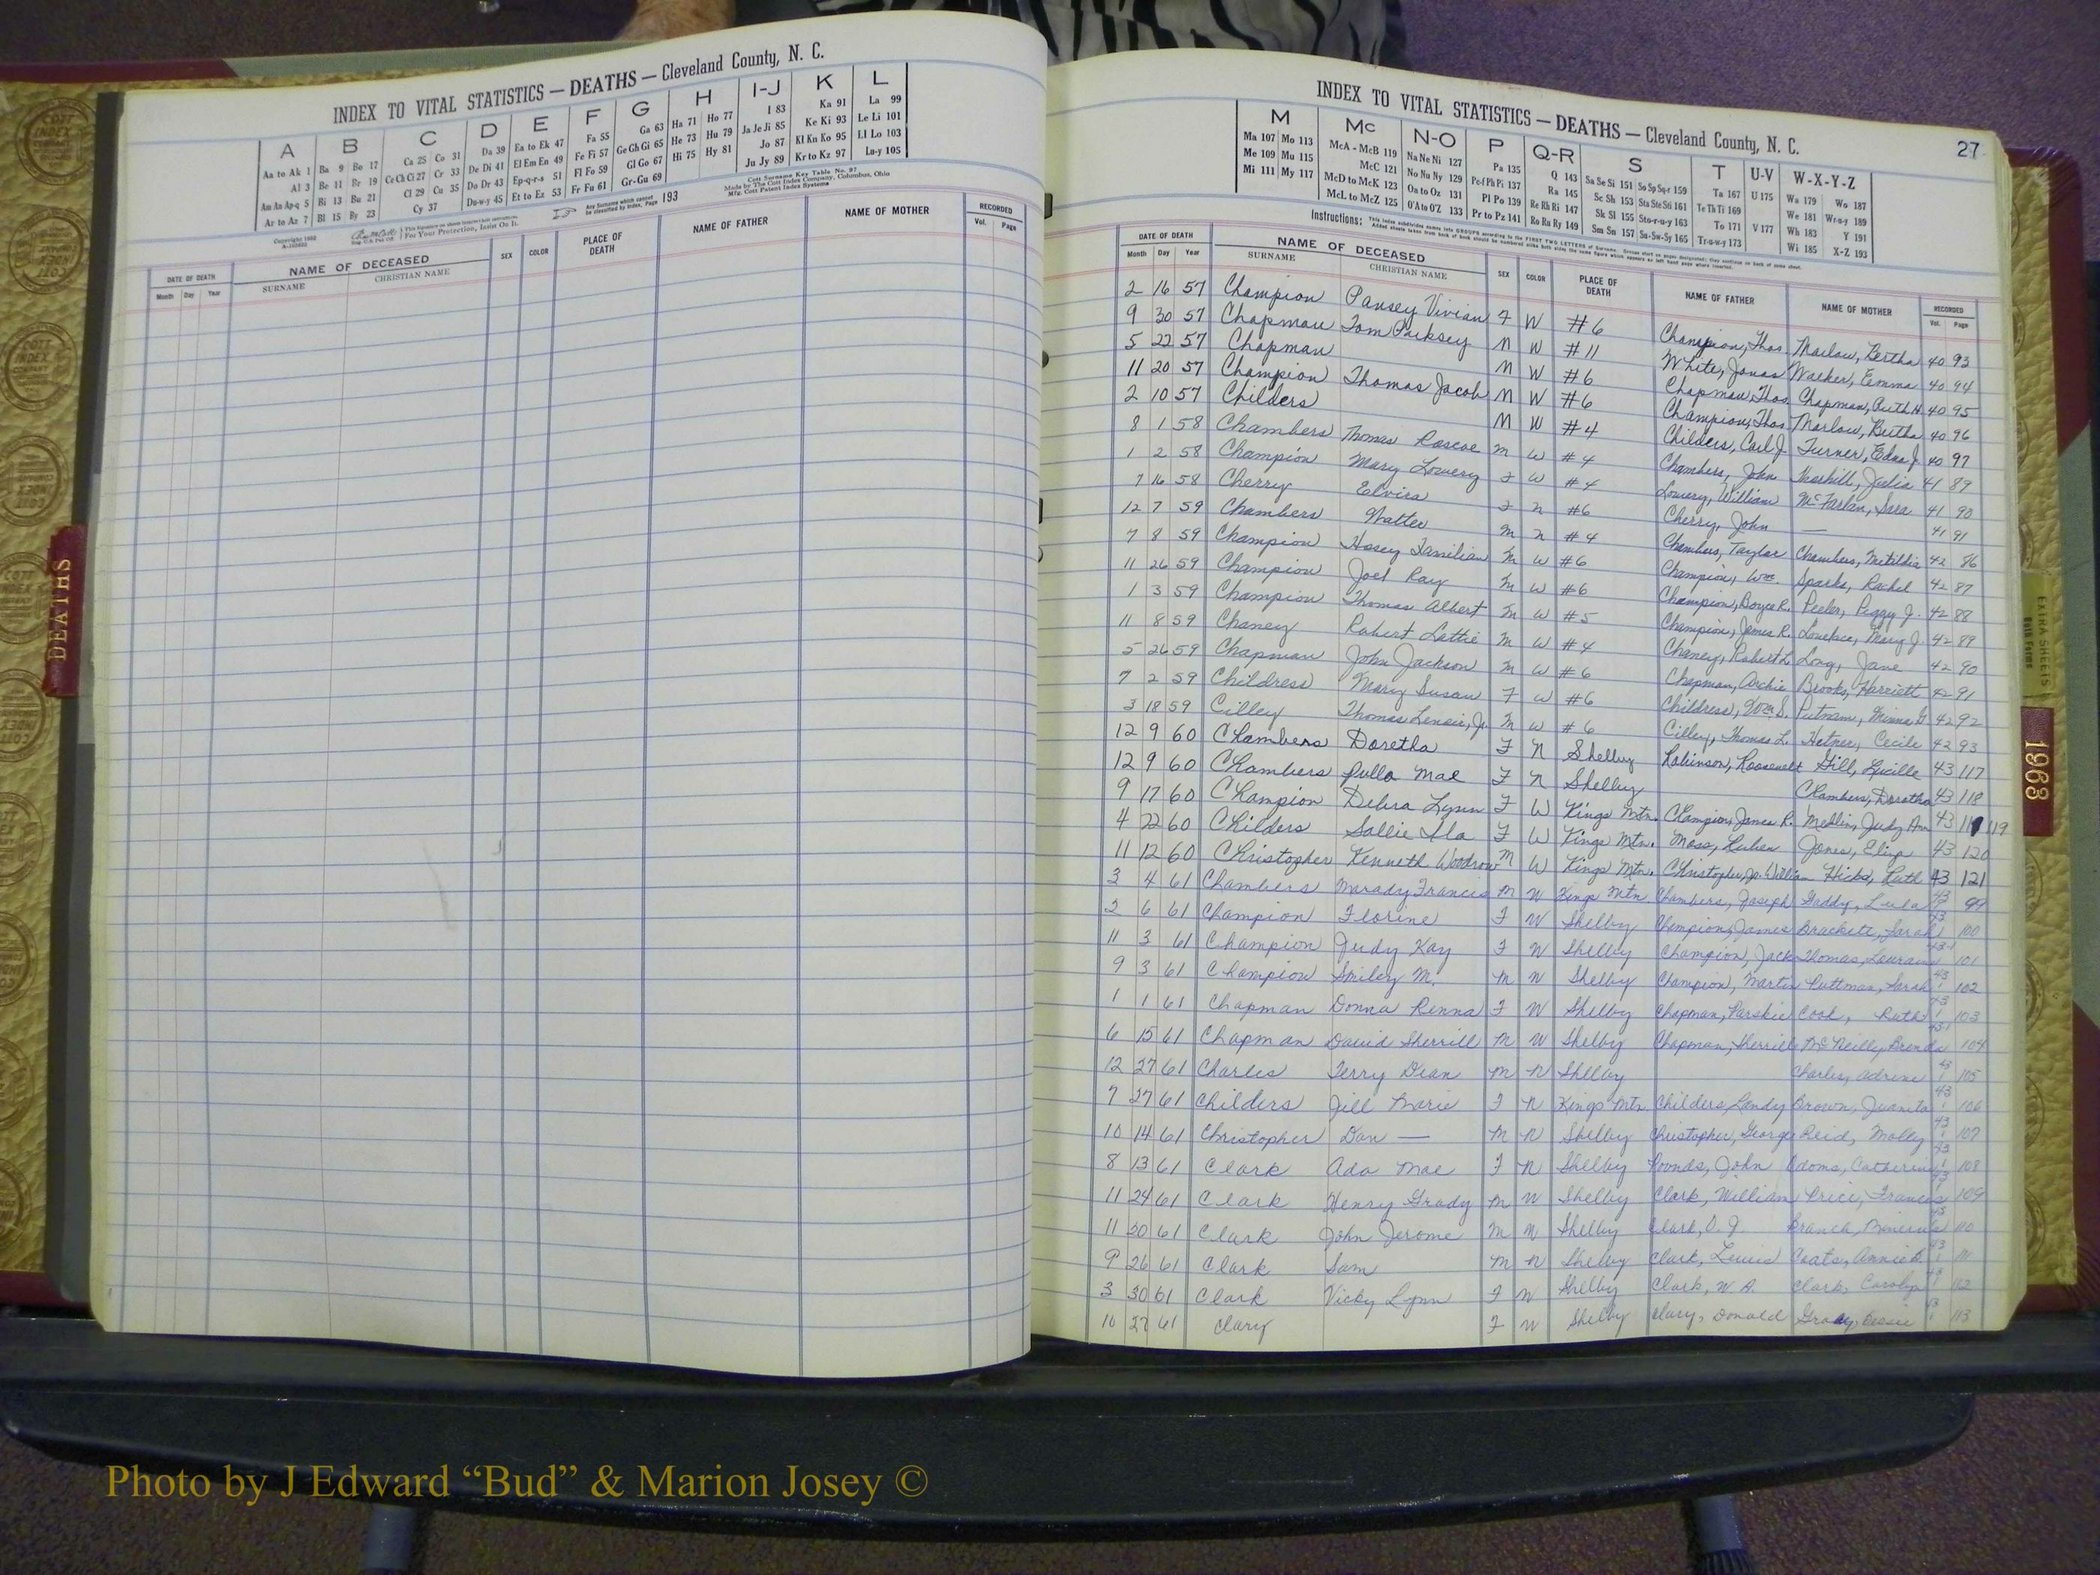 INDEX TO VITAL STATISTICS — DEATHS — Cleveland County, N. C.
A B C D E F G H I-J K L
Aa to Ak 1 Ba 9 Bo 17 Ca 25 Co 31 Da 39 Ea to Ek 47 Fa 55 Ga 63 Ha 71 Ho 77 I 83 Ka 91 La 99
Al 3 Be 11 Br 19 Ce Ch Ci 27 Cr 33 De Di 41 El Em En 49 Fe Fi 57 Ge Gh Gi 65 He 73 Hu 79 Ja Je Ji 85 Ke Ki 93 Le Li 101
Am An Ap-q 5 Bi 13 Bu 21 Cl 29 Cu 35 Do Dr 43 Ep-q-r-s 51 Fl Fo 59 Gl Go 67 Hi 75 Hy 81 Jo 87 Kl Kn Ko 95 Ll Lo 103
Ar to Az 7 Bl 15 By 23 Cy 37 Du-w-y 45 Et to Ez 53 Fr Fu 61 Gr-Gu 69 Ju Jy 89 Kr to Kz 97 Lu-y 105
Copyright 1952
For Your Protection, Insist On It.
Any Surname which cannot be classified by Index, Page 193
Cott Surname Key Table No. 97
Made by The Cott Index Company, Columbus, Ohio
Mfg. Cott Patent Index Systems
DATE OF DEATH NAME OF DECEASED SEX COLOR PLACE OF DEATH NAME OF FATHER NAME OF MOTHER RECORDED
Month Day Year SURNAME CHRISTIAN NAME Vol. Page
DEATHS
INDEX TO VITAL STATISTICS — DEATHS — Cleveland County, N. C.
27
M Mc N-O P Q-R S T U-V W-X-Y-Z
Ma 107 Mo 113 McA - McB 119 Na Ne Ni 127 Pa 135 Q 143 Sa Se Si 151 So Sp Sq-r 159 Ta 167 U 175 Wa 179 Wo 187
Me 109 Mu 115 McC 121 No Nu Ny 129 Pe-f Ph Pi 137 Ra 145 Sc SL 153 Sta Ste Sti 161 Te Th Ti 169 We 181 Wr-u-y 189
Mi 111 My 117 McD to McK 123 Oa to Oz 131 Pl Po 139 Re Rh Ri 147 Sk Sl 155 Sto-r-u-y 163 To 171 V 177 Wh 183 Y 191
McL to McZ 125 O'A to O'Z 133 Pr to Pz 141 Ro Ru Ry 149 Sm Sn 157 Su-Sw-Sy 165 Tr-u-w-y 173 Wi 185 X-Z 193
Instructions:
DATE OF DEATH NAME OF DECEASED SEX COLOR PLACE OF DEATH NAME OF FATHER NAME OF MOTHER RECORDED
Month Day Year SURNAME CHRISTIAN NAME Vol. Page
2 16 57 Champion Pansey Vivian F W #6 Champion, Thos. Marlow, Bertha 40 93
9 30 57 Chapman Tom Parksey M W #11 White, Jonas Walker, Emma 40 94
5 22 57 Chapman M W #6 Chapman, Thos. Chapman, Ruth H. 40 95
11 20 57 Champion Thomas Jacob M W #6 Champion, Thos. Marlow, Bertha 40 96
2 10 57 Childers M W #4 Childers, Carl J. Turner, Edna J. 40 97
8 1 58 Chambers Thomas Roscoe M W #4 Chambers, John Julia 41 89
1 2 58 Champion Mary Lowery F W #4 Lowery, William McFarlan, Sara 41 90
7 16 58 Cherry Elvira F N #6 Cherry, John — 41 91
12 7 59 Chambers Walter M N #4 Chambers, Taylor Chambers, Matildia 42 86
7 8 59 Champion Hosey Familian M W #6 Champion, Wm. Sparks, Rachel 42 87
11 26 59 Champion Joel Ray M W #6 Champion, Boyce R. Peeler, Peggy J. 42 88
1 3 59 Champion Thomas Albert M W #5 Champion, James R. Lovelace, Mary J. 42 89
11 8 59 Chaney Robert Lattie M W #4 Chaney, Robert L. Long, Jane 42 90
5 26 59 Chapman John Jackson M W #6 Chapman, Archie Brooks, Harriett 42 91
7 2 59 Childress Mary Susan F W #6 Childress, Wm. S. Putnam, Minna G 42 92
3 18 59 Cilley Thomas Lenoir, Jr. M W #6 Cilley, Thomas L. Hefner, Cecile 42 93
12 9 60 Chambers Doretha F N Shelby Robinson, Roosevelt Gill, Lucille 43 117
12 9 60 Chambers Lulla Mae F N Shelby Chambers, Doretha 43 118
9 17 60 Champion Debra Lynn F W Kings Mtn. Champion, James R. Medlin, Judy Ann 43 119
4 22 60 Childers Sallie Ila F W Kings Mtn. Moss, Ruben Jones, Eliza 43 120
11 12 60 Christopher Kenneth Woodrow M W Kings Mtn. Christopher, Jr. William Hicks, Ruth 43 121
3 4 61 Chambers Marady Francis M W Kings Mtn Chambers, Joseph Gaddy, Lula 43 1 99
2 6 61 Champion Florine F W Shelby Champion, James Brackett, Sarah 43 1 100
11 3 61 Champion Judy Kay F W Shelby Champion, Jack Thomas, Louraine 43-1 101
9 3 61 Champion Smiley M. M W Shelby Champion, Martin Puttman, Sarah 43 1 102
1 1 61 Chapman Donna Renna F W Shelby Chapman, Parskie Cook, Ruth 43 1 103
6 15 61 Chapman David Sherrill M W Shelby Chapman, Sherrill McNeilly, Brenda 43-1 104
12 27 61 Charles Terry Dean M N Shelby Charles, Adrine 43 1 105
7 27 61 Childers Jill Marie F N Kings Mtn. Childers, Landy Brown, Juanita 43 1 106
10 14 61 Christopher Dan — M N Shelby Christopher, George Reid, Molley 43 1 107
8 13 61 Clark Ada Mae F N Shelby Pounds, John Adams, Catherine 43 1 108
11 24 61 Clark Henry Grady M W Shelby Clark, William Price, Frances 43 1 109
11 30 61 Clark John Jerome M N Shelby Clark, O. J. Branch, Minerva 43 110
9 26 61 Clark Sam M N Shelby Clark, Lewis Coats, Annie B. 43 1 111
3 30 61 Clark Vicky Lynn F W Shelby Clark, W. A. Clark, Carolyn 43 1 112
10 27 61 Clary F W Shelby Clary, Donald Grady, Bessie 43 1 113
EXTRA SHEETS
1963
Photo by J Edward “Bud” & Marion Josey ©